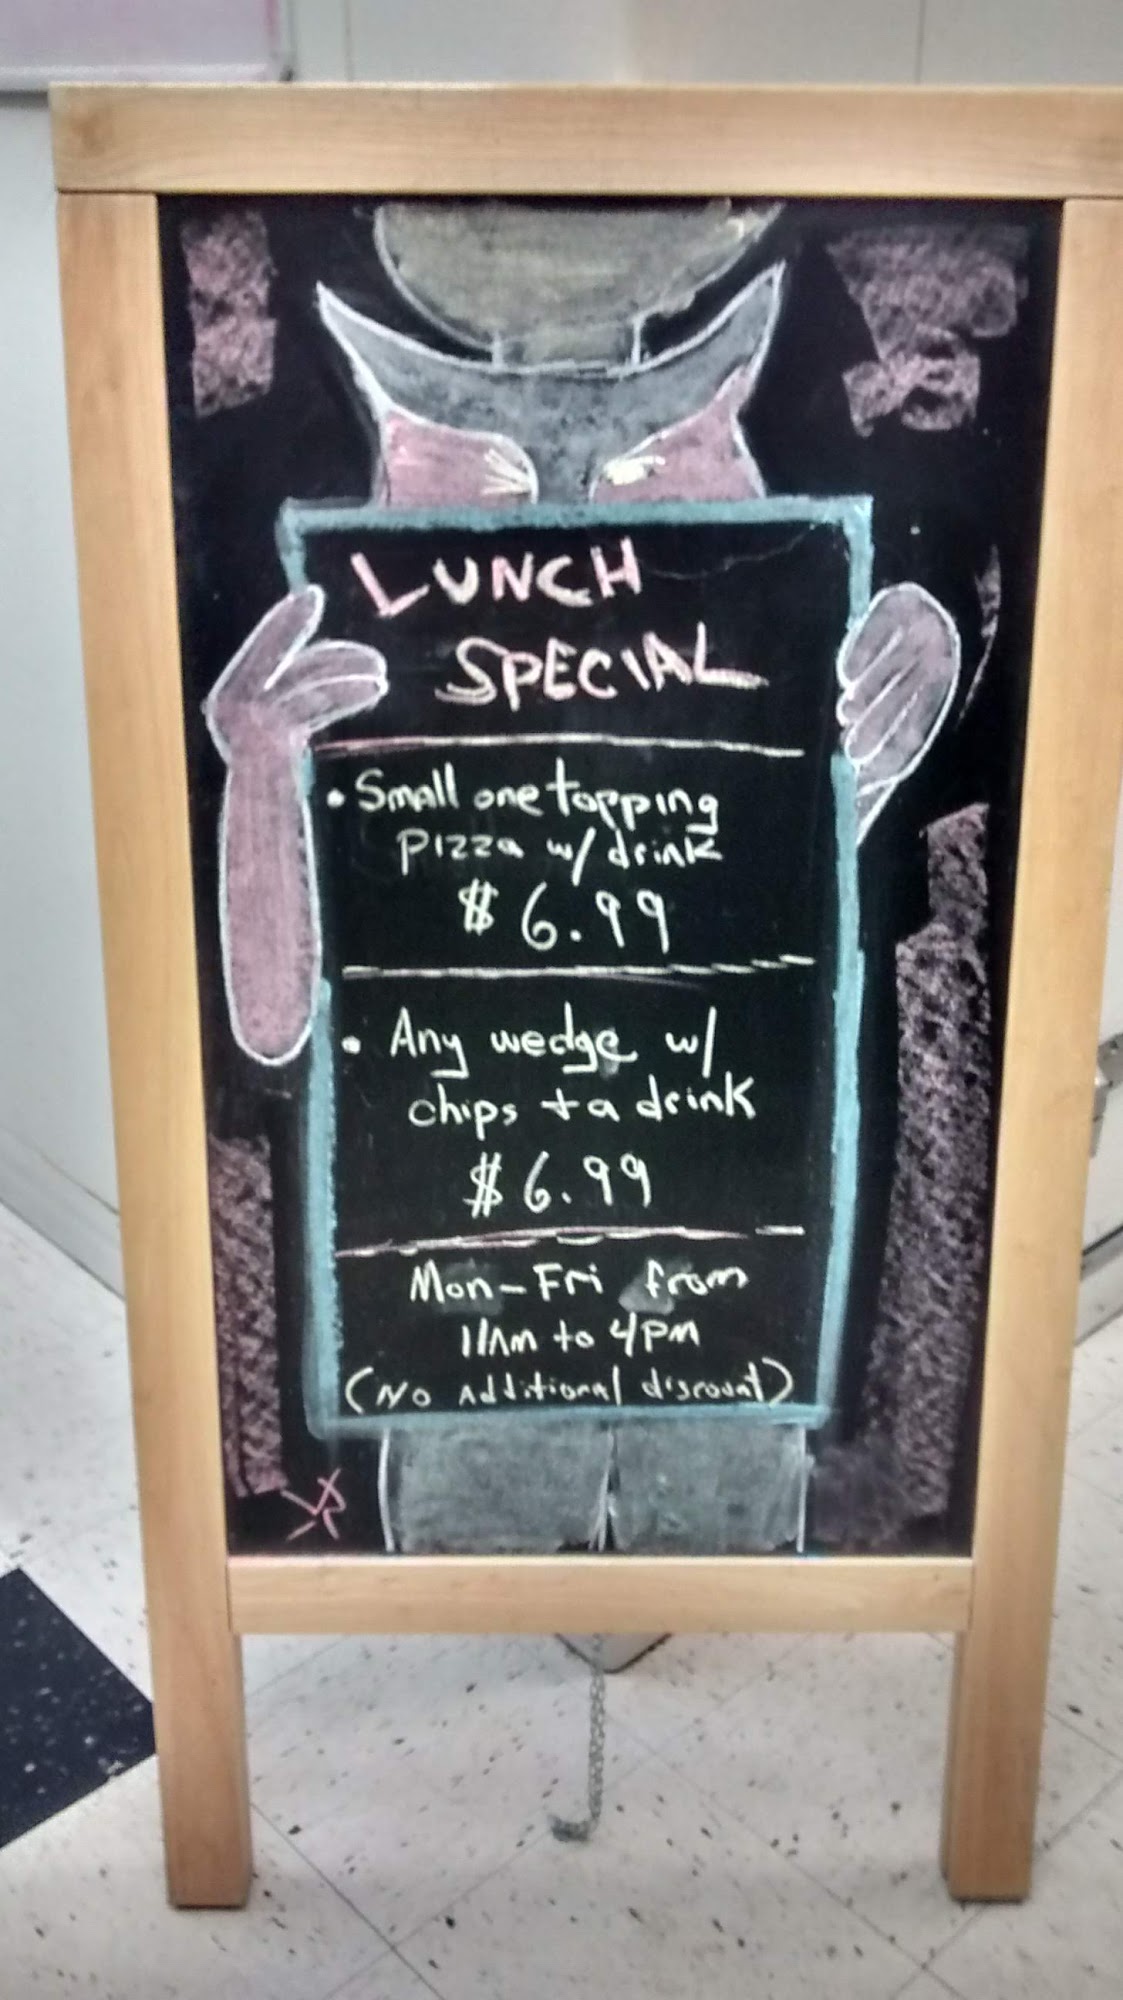 LUNCH
SPECIAL
• Small one topping
pizza w/ drink
$ 6.99
• Any wedge w/
chips + a drink
$ 6.99
Mon-Fri from
11AM to 4PM
(No Additional discount)